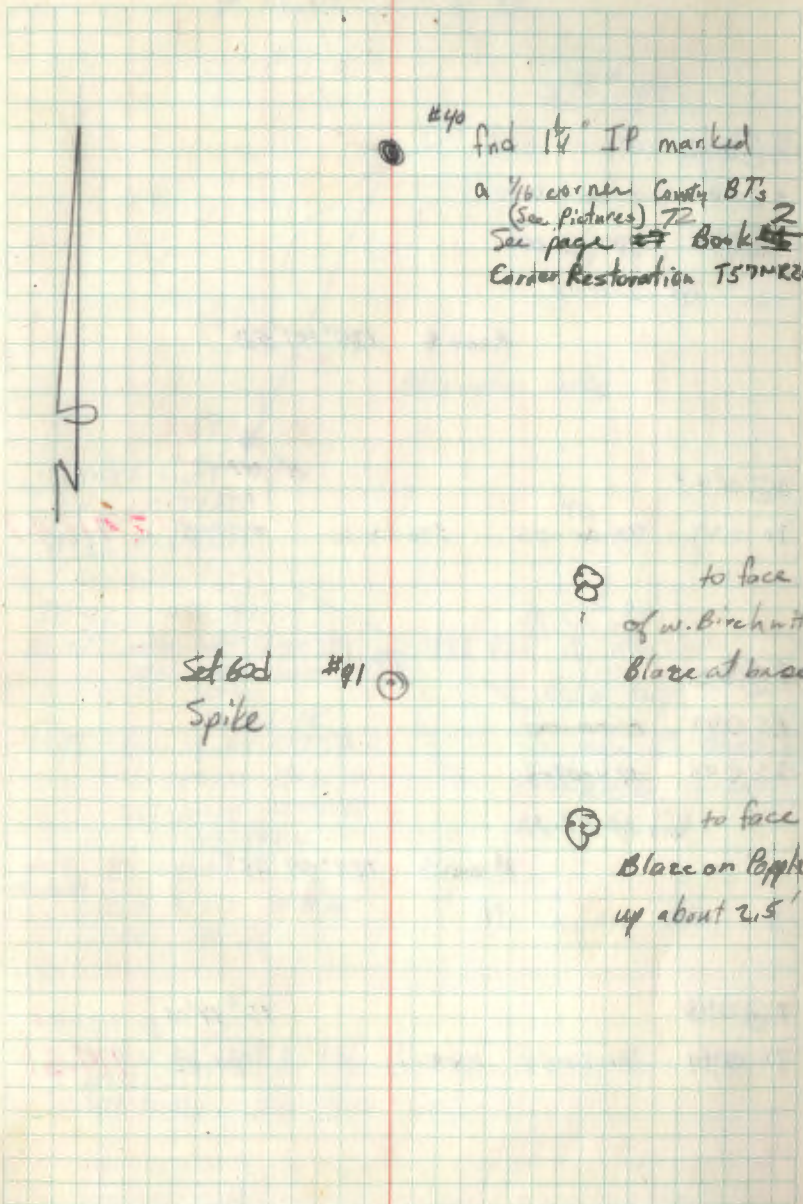 #40 fnd 1¼" IP marked
a 1/16 corner County BTs
(See Pictures) 72 2
See page Book
Corner Restoration T57N R2
to face
of w. Birch wit
Blaze at base
Set 60d #41
Spike
to face
Blaze on Popple
up about 2.5'
N